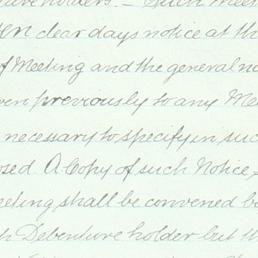 holders. - Such Meet
en clear days notice at th
f Meeting and the general n
ven previously to any Me
necessary to specify in suc
osed. A Copy of such Notice
eeting shall be convened b
h Debenture holder but th